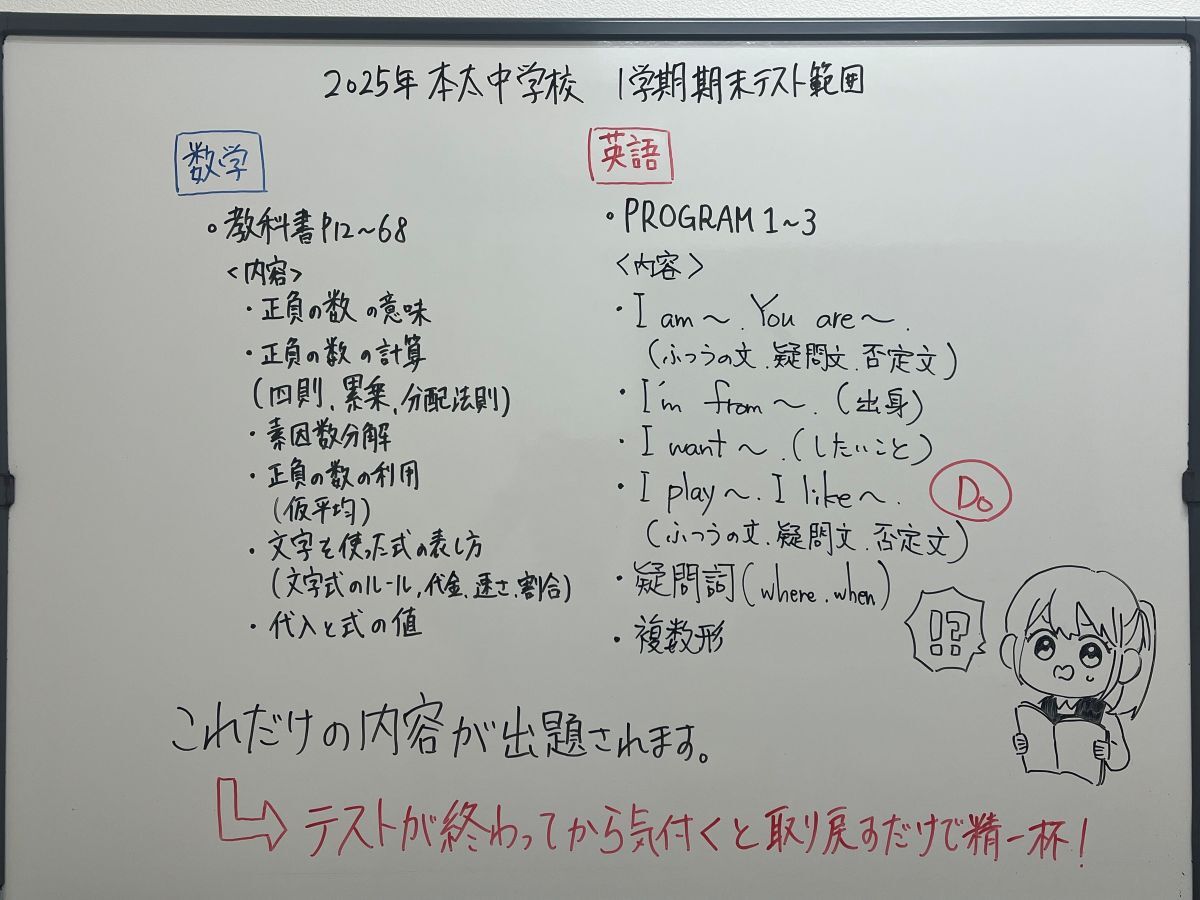 2025年 本太中学校 1学期期末テスト範囲
数学
・教科書P12～68
<内容>
・正負の数の意味
・正負の数の計算
(四則、累乗、分配法則)
・素因数分解
・正負の数の利用
(仮平均)
・文字を使った式の表し方
(文字式のルール、代金、速さ、割合)
・代入と式の値
英語
・PROGRAM 1～3
<内容>
・I am ～. You are ～.
(ふつうの文、疑問文、否定文)
・I'm from ～. (出身)
・I want ～. (したいこと)
・I play ～. I like ～.
Do
(ふつうの文、疑問文、否定文)
・疑問詞(where、when)
・複数形
!?
これだけの内容が出題されます。
テストが終わってから気付くと取り戻すだけで精一杯!